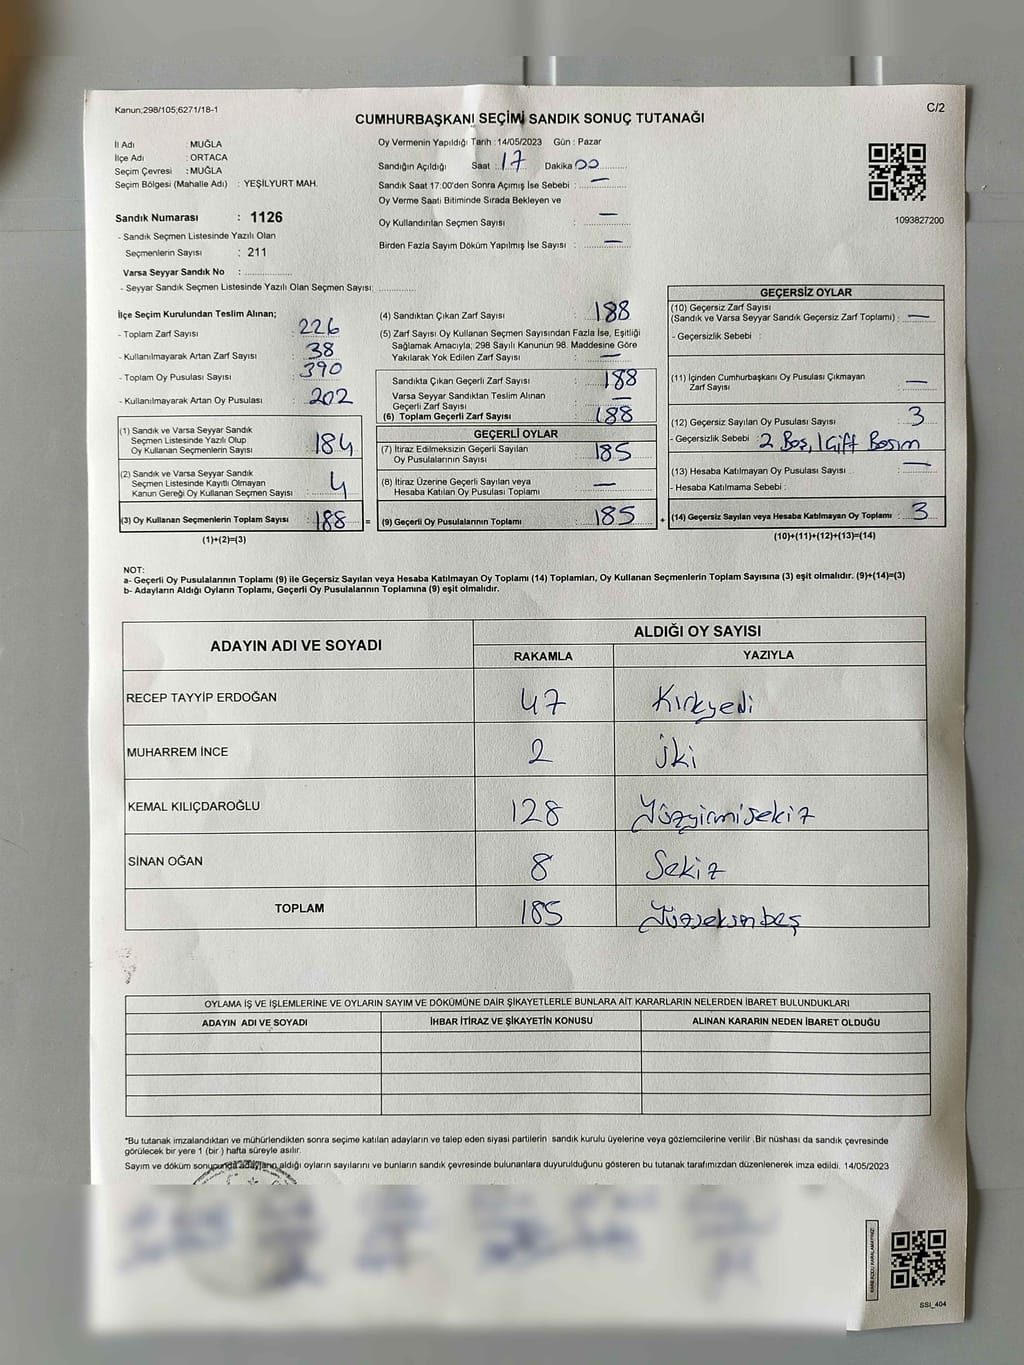 Kanun;298/105;6271/18-1
C/2
CUMHURBAŞKANI SEÇİMİ SANDIK SONUÇ TUTANAĞI
İl Adı : MUĞLA
İlçe Adı : ORTACA
Seçim Çevresi : MUĞLA
Seçim Bölgesi (Mahalle Adı) : YEŞİLYURT MAH.
Sandık Numarası : 1126
- Sandık Seçmen Listesinde Yazılı Olan
Seçmenlerin Sayısı : 211
Varsa Seyyar Sandık No : ..............
- Seyyar Sandık Seçmen Listesinde Yazılı Olan Seçmen Sayısı: ............
Oy Vermenin Yapıldığı Tarih : 14/05/2023 Gün : Pazar
Sandığın Açıldığı Saat : 17 Dakika 00
Sandık Saat 17:00'den Sonra Açımış İse Sebebi : —
Oy Verme Saati Bitiminde Sırada Bekleyen ve
Oy Kullandırılan Seçmen Sayısı : —
Birden Fazla Sayım Döküm Yapılmış İse Sayısı : —
1093827200
İlçe Seçim Kurulundan Teslim Alınan;
- Toplam Zarf Sayısı : 226
- Kullanılmayarak Artan Zarf Sayısı : 38
- Toplam Oy Pusulası Sayısı : 390
- Kullanılmayarak Artan Oy Pusulası : 202
(1) Sandık ve Varsa Seyyar Sandık
Seçmen Listesinde Yazılı Olup
Oy Kullanan Seçmenlerin Sayısı : 184
(2) Sandık ve Varsa Seyyar Sandık
Seçmen Listesinde Kayıtlı Olmayan
Kanun Gereği Oy Kullanan Seçmen Sayısı : 4
(3) Oy Kullanan Seçmenlerin Toplam Sayısı : 188 =
(1)+(2)=(3)
(4) Sandıktan Çıkan Zarf Sayısı : 188
(5) Zarf Sayısı Oy Kullanan Seçmen Sayısından Fazla İse, Eşitliği
Sağlamak Amacıyla; 298 Sayılı Kanunun 98. Maddesine Göre
Yakılarak Yok Edilen Zarf Sayısı : —
Sandıkta Çıkan Geçerli Zarf Sayısı : 188
Varsa Seyyar Sandıktan Teslim Alınan
Geçerli Zarf Sayısı : —
(6) Toplam Geçerli Zarf Sayısı : 188
GEÇERLİ OYLAR
(7) İtiraz Edilmeksizin Geçerli Sayılan
Oy Pusulalarının Sayısı : 185
(8) İtiraz Üzerine Geçerli Sayılan veya
Hesaba Katılan Oy Pusulası Toplamı : —
(9) Geçerli Oy Pusulalarının Toplamı : 185 +
GEÇERSİZ OYLAR
(10) Geçersiz Zarf Sayısı
(Sandık ve Varsa Seyyar Sandık Geçersiz Zarf Toplamı) : —
- Geçersizlik Sebebi :
(11) İçinden Cumhurbaşkanı Oy Pusulası Çıkmayan
Zarf Sayısı : —
(12) Geçersiz Sayılan Oy Pusulası Sayısı : 3
- Geçersizlik Sebebi : 2 Boş, 1 Çift Basım
(13) Hesaba Katılmayan Oy Pusulası Sayısı : —
- Hesaba Katılmama Sebebi :
(14) Geçersiz Sayılan veya Hesaba Katılmayan Oy Toplamı : 3
(10)+(11)+(12)+(13)=(14)
NOT:
a- Geçerli Oy Pusulalarının Toplamı (9) ile Geçersiz Sayılan veya Hesaba Katılmayan Oy Toplamı (14) Toplamları, Oy Kullanan Seçmenlerin Toplam Sayısına (3) eşit olmalıdır. (9)+(14)=(3)
b- Adayların Aldığı Oyların Toplamı, Geçerli Oy Pusulalarının Toplamına (9) eşit olmalıdır.
ADAYIN ADI VE SOYADI ALDIĞI OY SAYISI
RAKAMLA YAZIYLA
RECEP TAYYİP ERDOĞAN 47 Kırkyedi
MUHARREM İNCE 2 İki
KEMAL KILIÇDAROĞLU 128 Yüzyirmisekiz
SİNAN OĞAN 8 Sekiz
TOPLAM 185 Yüzseksenbeş
OYLAMA İŞ VE İŞLEMLERİNE VE OYLARIN SAYIM VE DÖKÜMÜNE DAİR ŞİKAYETLERLE BUNLARA AİT KARARLARIN NELERDEN İBARET BULUNDUKLARI
ADAYIN ADI VE SOYADI İHBAR İTİRAZ VE ŞİKAYETİN KONUSU ALINAN KARARIN NEDEN İBARET OLDUĞU
*Bu tutanak imzalandıktan ve mühürlendikten sonra seçime katılan adayların ve talep eden siyasi partilerin sandık kurulu üyelerine veya gözlemcilerine verilir .Bir nüshası da sandık çevresinde
görülecek bir yere 1 (bir ) hafta süreyle asılır.
Sayım ve döküm sonucunda adayların aldığı oyların sayılarını ve bunların sandık çevresinde bulunanlara duyurulduğunu gösteren bu tutanak tarafımızdan düzenlenerek imza edildi. 14/05/2023
SSI_404